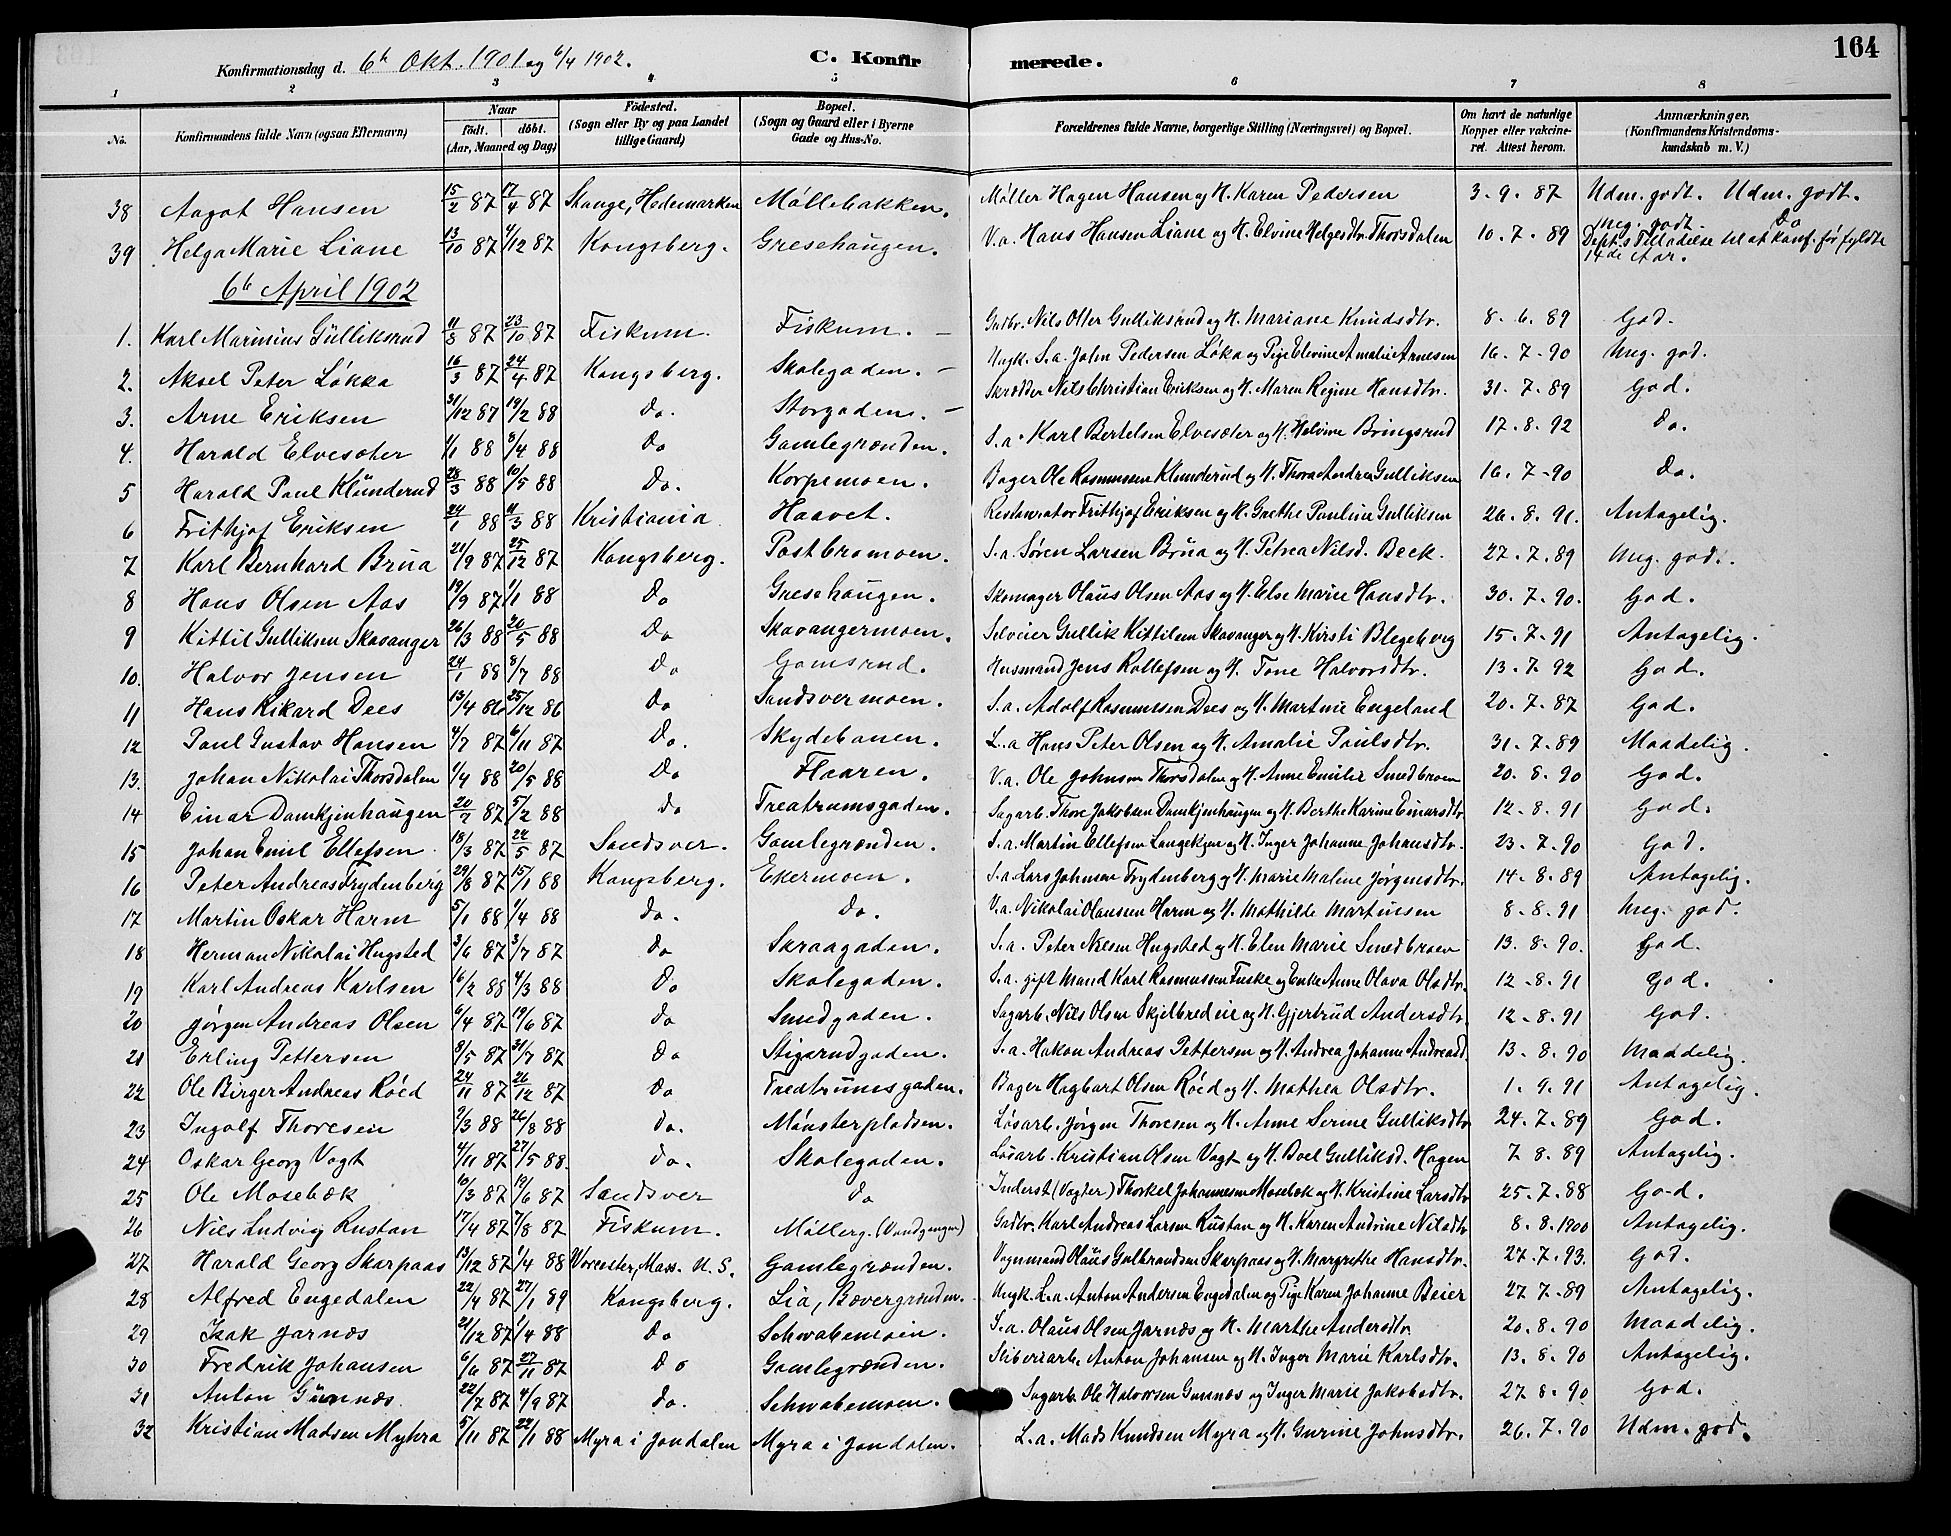 164
Konfirmationsdag d. 6te Okt. 1901 og 6/4 1902.
C. Konfirmerede.
1 2 3 4 5 6 7 8
No. Konfirmandens fulde Navn (ogsaa Efternavn) Naar födt. döbt. (Aar, Maaned og Dag) Födested. (Sogn eller By og paa Landet tillige Gaard) Bopæl. (Sogn og Gaard eller i Byerne Gade og Hus-No. Forældrenes fulde Navne, borgerlige Stilling (Næringsvei) og Bopæl. Om havt de naturlige Kopper eller vakcineret. Attest herom. Anmærkninger. (Konfirmandens Kristendomskundskab m. V.)
38 Aagot Hansen 15/2 87 17/4 87 Stange, Hedemarken Møllebakken. Møller Hagen Hansen og H. Karen Pedersen 3-9-87 Udm. godt. Udm. godt.
39 Helga Marie Liane 13/10 87 4/12 87 Kongsberg. Gresehaugen. V.a. Hans Hansen Liane og H. Elvine Helgesdtr. Thorsdalen 10-7-89 Meg. godt do Dept.s Tilladelse til at konf. før fyldte 14de Aar.
6te April 1902
1. Karl Marinius Gulliksrud 11/3 87 23/10 87 Fiskum. Fiskum. – Gudbr. Nils Olter Gulliksrud og H. Mariane Knudsdtr. 8-6-89 God.
2. Aksel Peter Løkka 16/3 87 24/4 87 Kongsberg. Skolegaden. – Ungk. S.a. John Pedersen Løka og Pige Elvine Amalie Arnesen 16-7-90 Meg. god.
3. Arne Eriksen 31/12 87 19/2 88 do. Storgaden. – Skrædder Nils Christian Eriksen og H. Maren Regine Hansdtr. 31-7-89 God.
4. Harald Elvesæter 1/1 88 8/4 88 do Gamlegrænden. S.a. Karl Bertelsen Elvesæter og H. Helvine Bringsrud 17-8-92 do.
5 Harald Paul Klunderud 28/3 88 10/5 88 do. Korpemoen. Bager Ole Rasmussen Klunderud og H. Thora Andrea Gulliksen 16-7-90 do.
6 Frithjof Eriksen 24/1 88 11/3 88 Kristiania Haavet. Restaurator Frithjof Eriksen og H. Grethe Pauline Gulliksen 26-8-91. Antagelig.
7 Karl Bernhard Brua 21/9 87 25/12 87 Kongsberg. Postbromoen. S.a. Søren Larsen Brua og H. Petrea Nilsd. Beck. 27-7-89 Meg. god.
8 Hans Olsen Aas 19/9 87 1/1 88 do Gresehaugen. Skomager Olaus Olsen Aas og H. Else Marie Hansdtr. 30-7-90. God.
9 Kittil Gulliksen Skavanger 26/3 88 20/5 88 do Skavangermoen. Selveier Gullik Kittilsen Skavanger og H. Kirsti Blegeberg 15-7-91 Antagelig.
10. Halvor Jensen 24/1 88 8/7 88 do Gamsrud. Husmand Jens Rollefsen og H. Tone Halvorsdtr. 13-7-92 God.
11 Hans Rikard Dees 13/4 86 25/12 86 do Sandsvermoen. S.a. Adolf Rasmussen Dees og H. Martine Engeland 20-7-87 God.
12 Paul Gustav Hansen 4/7 87 6/11 87 do. Skydebanen. L.a Hans Peter Olsen og H. Amalie Paulsdtr. 31-7-89 Maadelig.
13. Johan Nikolai Thorsdalen 1/4 88 20/5 88 do Flaaren. V.a. Ole Johnsen Thorsdalen og H. Anne Emilie Smedbroen 20-8-90 God.
14 Einar Damkjenhaugen 20/7 87 5/2 88 do Treatrumsgaden. Sagarb. Thore Jakobsen Damkjenhaugen og H. Berthe Karine Einarsdtr 12-8-91 God.
15 Johan Emil Ellefsen 18/3 87 22/5 87 Sandsver. Gamlegrænden. S.a. Martin Ellefsen Langekjen og H. Inger Johanne Johansdtr. 23-7-90 God.
16 Peter Andreas Frydenberg 29/8 87 15/1 88 Kongsberg. Ekermoen. S.a. Lars Johnsen Frydenberg og H. Marie Maline Jørgensdtr. 14-8-89 Antagelig.
17 Martin Oskar Harm 5/1 88 1/4 88 do. do. V.a. Nikolai Hansen Harm og H. Mathilde Martinsen 8-8-91 Meg. god.
18 Herman Nikolai Hugsted 3/6 87 3/7 87 do Skraagaden. S.a. Peter Nilsen Hugsted og H. Elen Marie Smedbroen 13-8-90. God.
19 Karl Andreas Karlsen 6/2 88 4/3 88 do Skolegaden. S.a. gift Mand Karl Rasmussen Fuske og Enke Anne Olava Olsdtr. 12-8-91 God.
20 Jørgen Andreas Olsen 6/4 87 19/6 87 do Smedgaden. Sagarb. Nils Olsen Skjelbredeie og H. Gjertrud Andersdtr. 12-8-91 God.
21 Erling Pettersen 8/5 87 31/7 87 do Stigsrudgaden. S.a. Hakon Andreas Pettersen og H. Andrea Johanne Andreasd. 13-8-90 Maadelig.
22 Ole Birger Andreas Róed 24/11 87 26/12 87 do Treatrumsgaden. Bager Hagbart Olsen Róed og H. Mathea Olsdtr. 1-9-91 Antagelig.
23 Ingolf Thoresen 9/3 88 26/8 88 do. Mønsterpladsen. Løsarb. Jørgen Thoresen og H. Anne Serine Gulliksdtr 24-7-89 God.
24 Oskar Georg Vogt 4/11 87 27/5 88. do. Skolegaden. Løsarb. Kristian Olsen Vogt og H. Boel Gulliksd. Hagen 7 8-89 Antagelig.
25 Ole Mosebæk 10/3 87 19/6 87 Sandsver do Inderst (Vogter) Thorkel Johannesen Mosebæk og H. Kristine Larsdtr 25-7-88 God.
26 Nils Ludvig Rustan 17/4 87 7/8 87 Fiskum. Møllerg. (Vandgangen) Gudbr. Karl Andreas Larsen Rustan og H. Karen Andrine Nilsdtr 8-8-1900 Antagelig.
27 Harald Georg Skarpaas 13/12 87 1/4 88 Worcester, Mass. U.S. Gamlegrænden. Vognmand Olaus Gulbrandsen Skarpaas og H. Margrethe Hansdtr. 27-7-93. God.
28 Alfred Engedalen 22/4 87 27/1 89 Kongsberg. Lia, Bævergrænden. Ungk. L.a. Anton Andersen Engedalen og Pige Karen Johanne Beier 27 7-89 Antagelig.
29 Isak Jarnæs 21/12 87 1/4 88 do Schwabemoen. S.a. Olaus Olsen Jarnæs og H. Marthe Andersdtr. 20-8-90 Maadelig.
30 Fredrik Johansen 6/6 87 27/11 87 do Gamlegrænden. Stiberiarb. Anton Johansen og H. Inger Marie Karlsdtr. 13-8-90 Antagelig.
31 Anton Gunnæs 22/7 87 4/9 87 do. Schwabemoen. Sagarb. Ole Halvorsen Gunnæs og Inger Marie Jakobsdtr. 27 8-90 God.
32 Kristian Madsen Myhra 5/11 87 22/1 88 Myra i Jondalen Myra i Jondalen. L.a. Mads Knudsen Myra og H. Gurine Johnsdtr. 26-7-90 Udm. god.